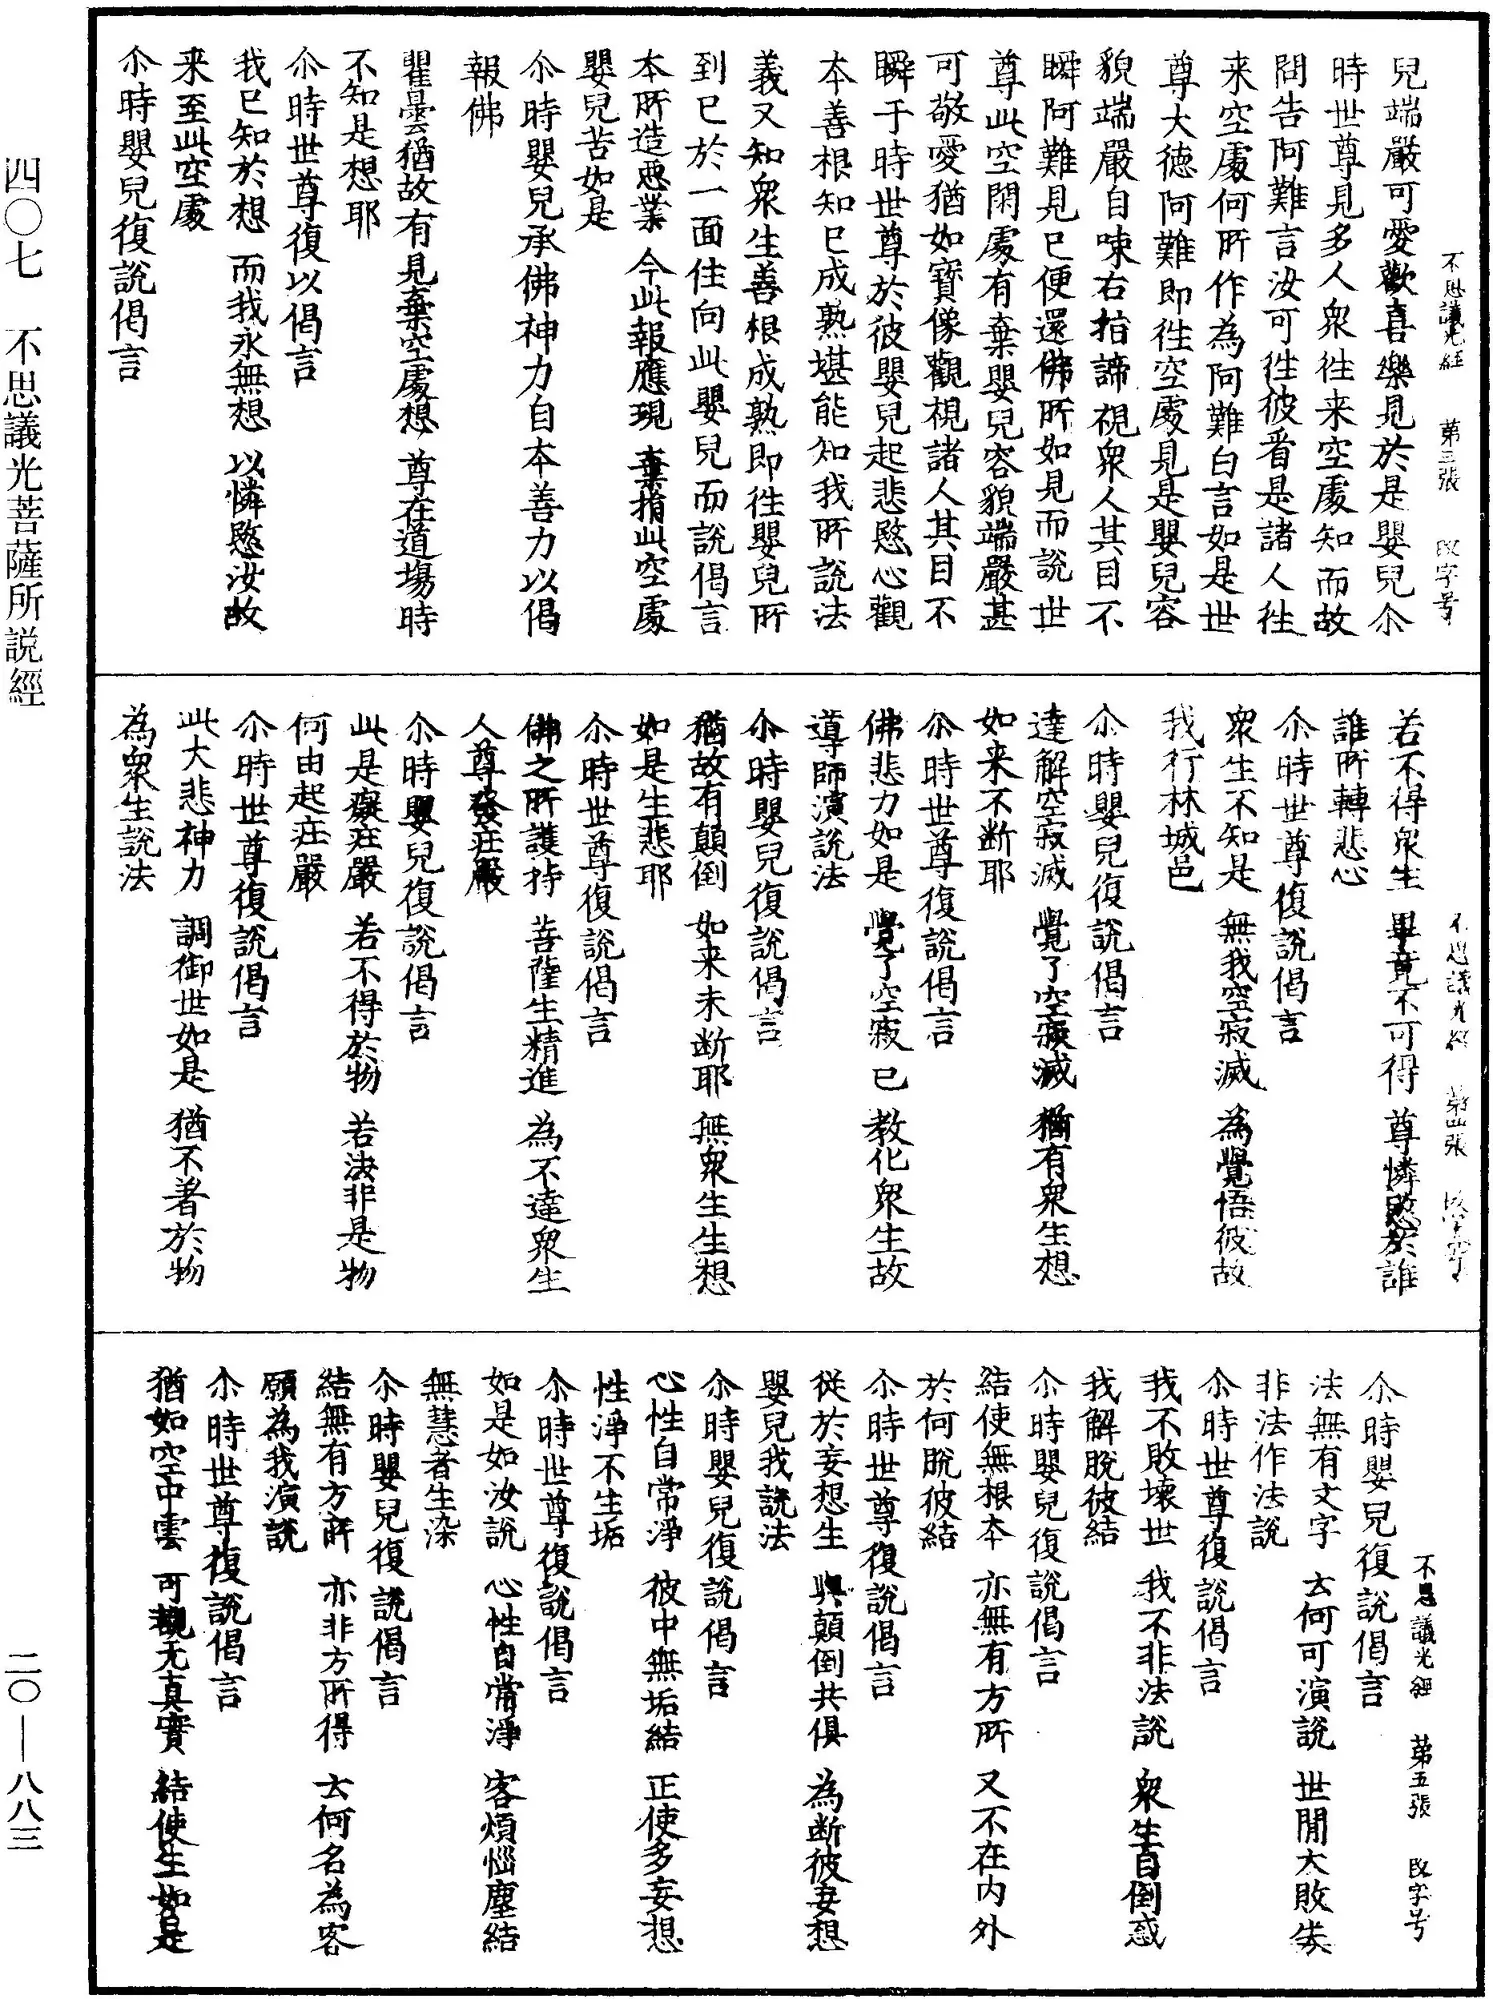 不思議光經 第三張 改字号
兒端嚴可愛歡喜樂見於是嬰兒尒
時世尊見多人衆往来空處知而故
問告阿難言汝可往彼看是諸人往
来空處何所作為阿難白言如是世
尊大德阿難即往空處見是嬰兒容
貌端嚴自㖒右指諦視衆人其目不
瞬阿難見已便還佛所如見而說世
尊此空閑處有棄嬰兒容貌端嚴甚
可敬愛猶如寶像觀視諸人其目不
瞬于時世尊於彼嬰兒起悲愍心觀
本善根知已成熟堪能知我所說法
義又知衆生善根成熟即往嬰兒所
到已於一面住向此嬰兒而說偈言
本所造惡業 今此報應現 棄捐此空處
嬰兒苦如是
尒時嬰兒承佛神力自本善力以偈
報佛
瞿曇猶故有 見棄空處想 尊在道場時
不知是想耶
尒時世尊復以偈言
我已知於想 而我永無想 以憐愍汝故
来至此空處
尒時嬰兒復說偈言
不思議光經 第四張
若不得衆生 畢竟不可得 尊憐愍於誰
誰所轉悲心
尒時世尊復說偈言
衆生不知是 無我空寂滅 為覺悟彼故
我行林城邑
尒時嬰兒復說偈言
達解空寂滅 覺了空寂滅 猶有衆生想
如来不断耶
尒時世尊復說偈言
佛悲力如是 覺了空寂已 教化衆生故
導師演說法
尒時嬰兒復說偈言
猶故有顛倒 如来未断耶 無衆生生想
如是生悲耶
尒時世尊復說偈言
佛之所護持 菩薩生精進 為不達衆生
人尊發莊嚴
尒時嬰兒復說偈言
此是癡莊嚴 若不得於物 若法非是物
何由起莊嚴
尒時世尊復說偈言
此大悲神力 調御世如是 猶不著於物
為衆生說法
不思議光經 第五張 改字号
尒時嬰兒復說偈言
法無有文字 云何可演說 世間大敗失
非法作法說
尒時世尊復說偈言
我不敗壞世 我不非法說 衆生自倒惑
我解脫彼結
尒時嬰兒復說偈言
結使無根本 亦無有方所 又不在内外
於何脫彼結
尒時世尊復說偈言
從於妄想生 與顛倒共俱 為断彼妄想
嬰兒我說法
尒時嬰兒復說偈言
心性自常淨 彼中無垢結 正使多妄想
性淨不生垢
尒時世尊復說偈言
如是如汝說 心性自常淨 客煩惱塵結
無慧者生染
尒時嬰兒復說偈言
結無有方所 亦非方所得 云何名為客
願為我演說
尒時世尊復說偈言
猶如空中雲 可覩无真實 結使生如是
四〇七 不思議光菩薩所説經
二〇—八八三